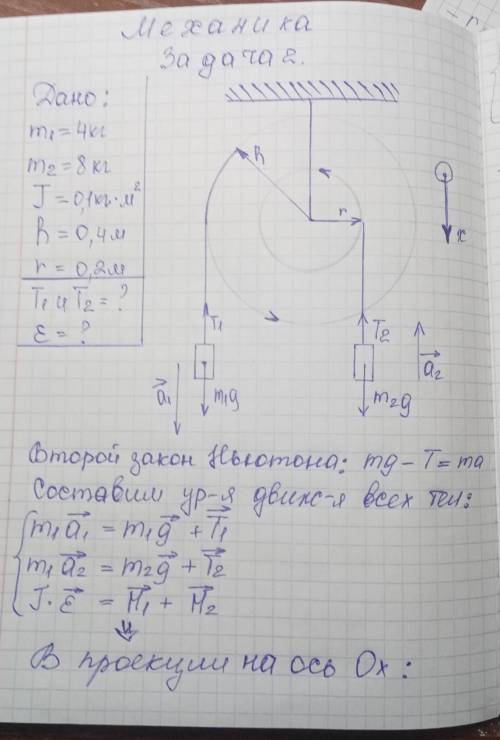 Механика
Задача 2.
Дано:
m₁ = 4 кг
m₂ = 8 кг
J = 0,1 кг·м²
R = 0,4 м
r = 0,2 м
T₁ и T₂ = ?
ε = ?
R
r
x
T₁
T₂
a⃗₁
m₁g
m₂g
a⃗₂
Второй закон Ньютона: mg - T = ma
Составим ур-я движ-я всех тел:
m₁a⃗₁ = m₁g⃗ + T⃗₁
m₁a⃗₂ = m₂g⃗ + T⃗₂
J·ε⃗ = M⃗₁ + M⃗₂
⇓
В проекции на ось Ox: